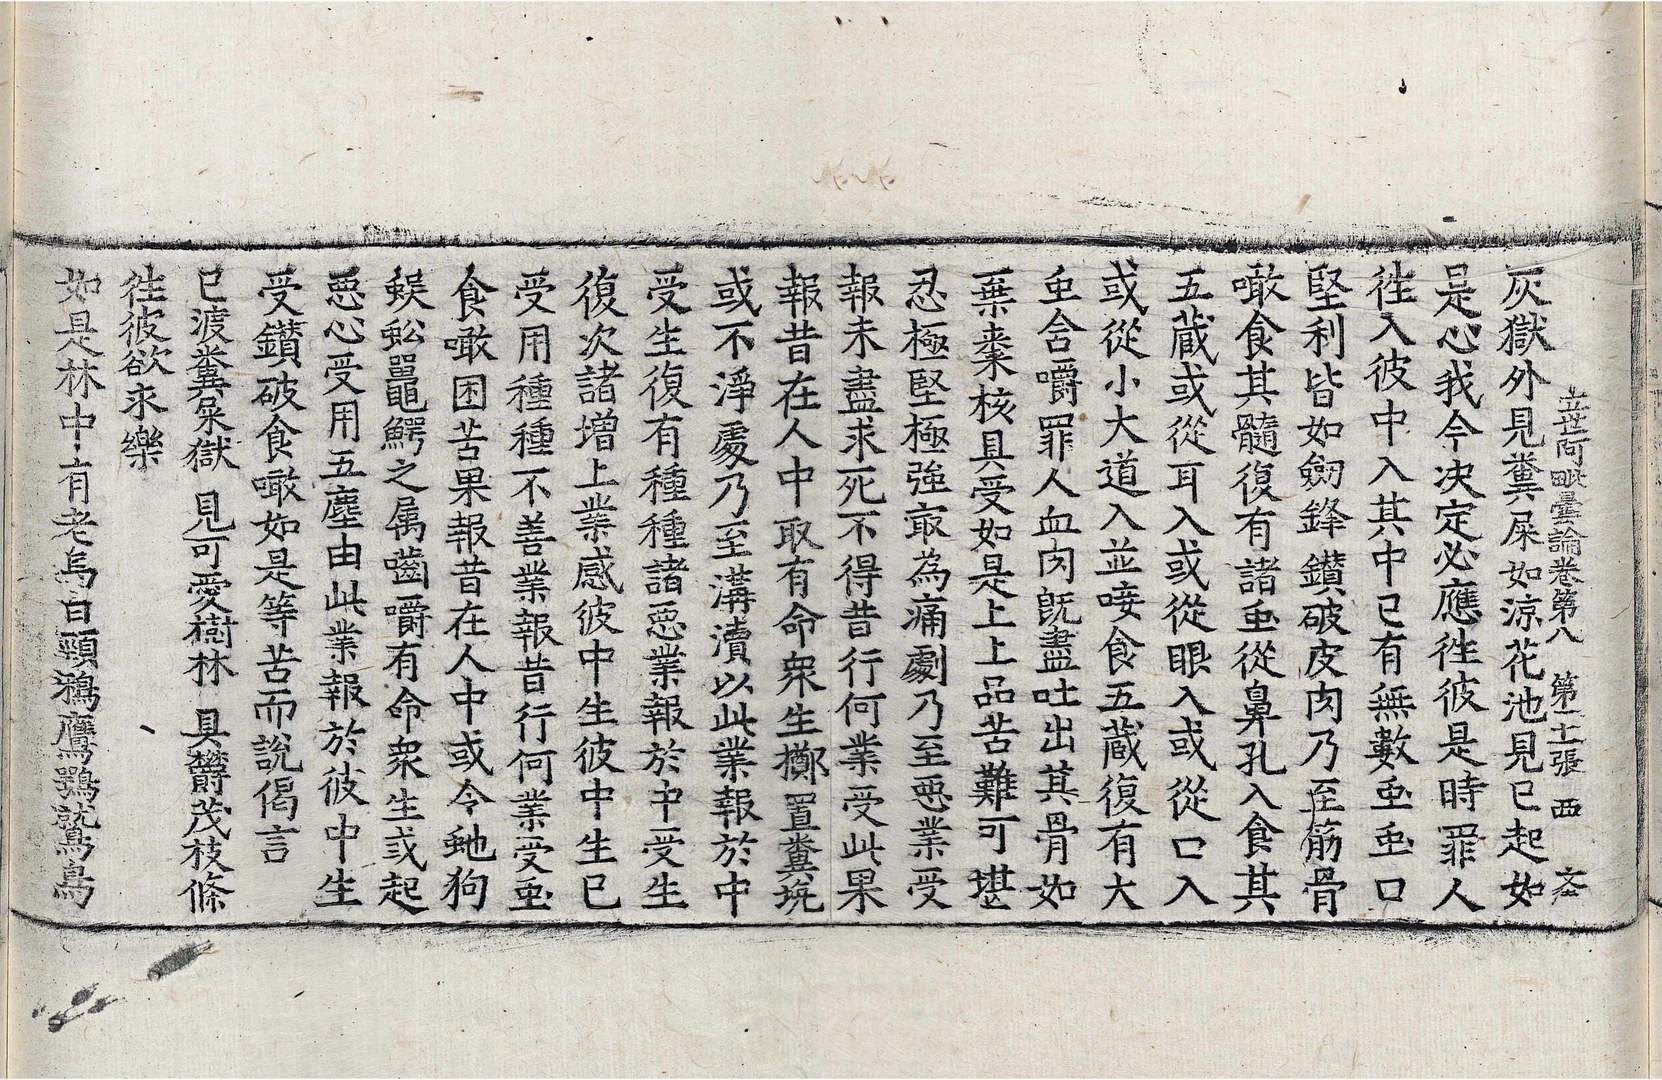 立世阿毗曇論卷第八 第二十張 西
灰獄外見糞屎如涼花池見已起如
是心我今決定必應徃彼是時罪人
徃入彼中入其中已有無數虫虫口
堅利皆如劒鋒鑚破皮肉乃至筋骨
噉食其髓復有諸虫從鼻孔入食其
五藏或從耳入或從眼入或從口入
或從小大道入並唼食五藏復有大
虫含嚼罪人血肉旣盡吐出其骨如
棄棗核具受如是上上品苦難可堪
忍極堅極強㝡為痛劇乃至悪業受
報未盡求死不得昔行何業受此果
報昔在人中取有命衆生擲置糞坑
或不淨處乃至溝瀆以此業報於中
受生復有種種諸悪業報於中受生
復次諸增上業感彼中生彼中生已
受用種種不善業報昔行何業受虫
食噉困苦果報昔在人中或令虵狗
蜈蚣鼉鰐之属齒嚼有命衆生或起
悪心受用五塵由此業報於彼中生
受鑚破食噉如是等苦而說偈言
已渡糞屎獄 見可愛樹林 具欝茂枝條
徃彼欲求樂
如是林中有老烏白頸鵶鷹鶚鷲鳥